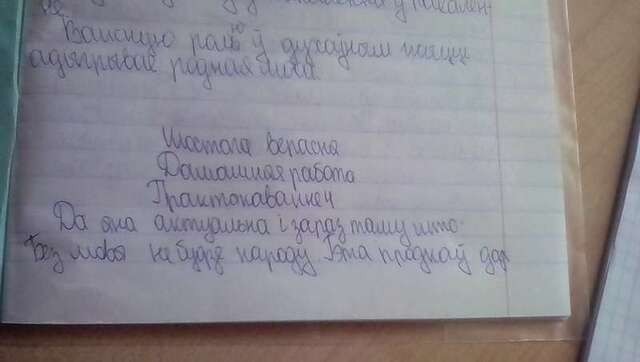 Важную ролю ў духоўным
адыгрывае родная мова.
Шостага верасня
Дамашняя работа
Да яна актуальна і зараз таму што
Без мовы не будзе народу. Гэта продкаў дар